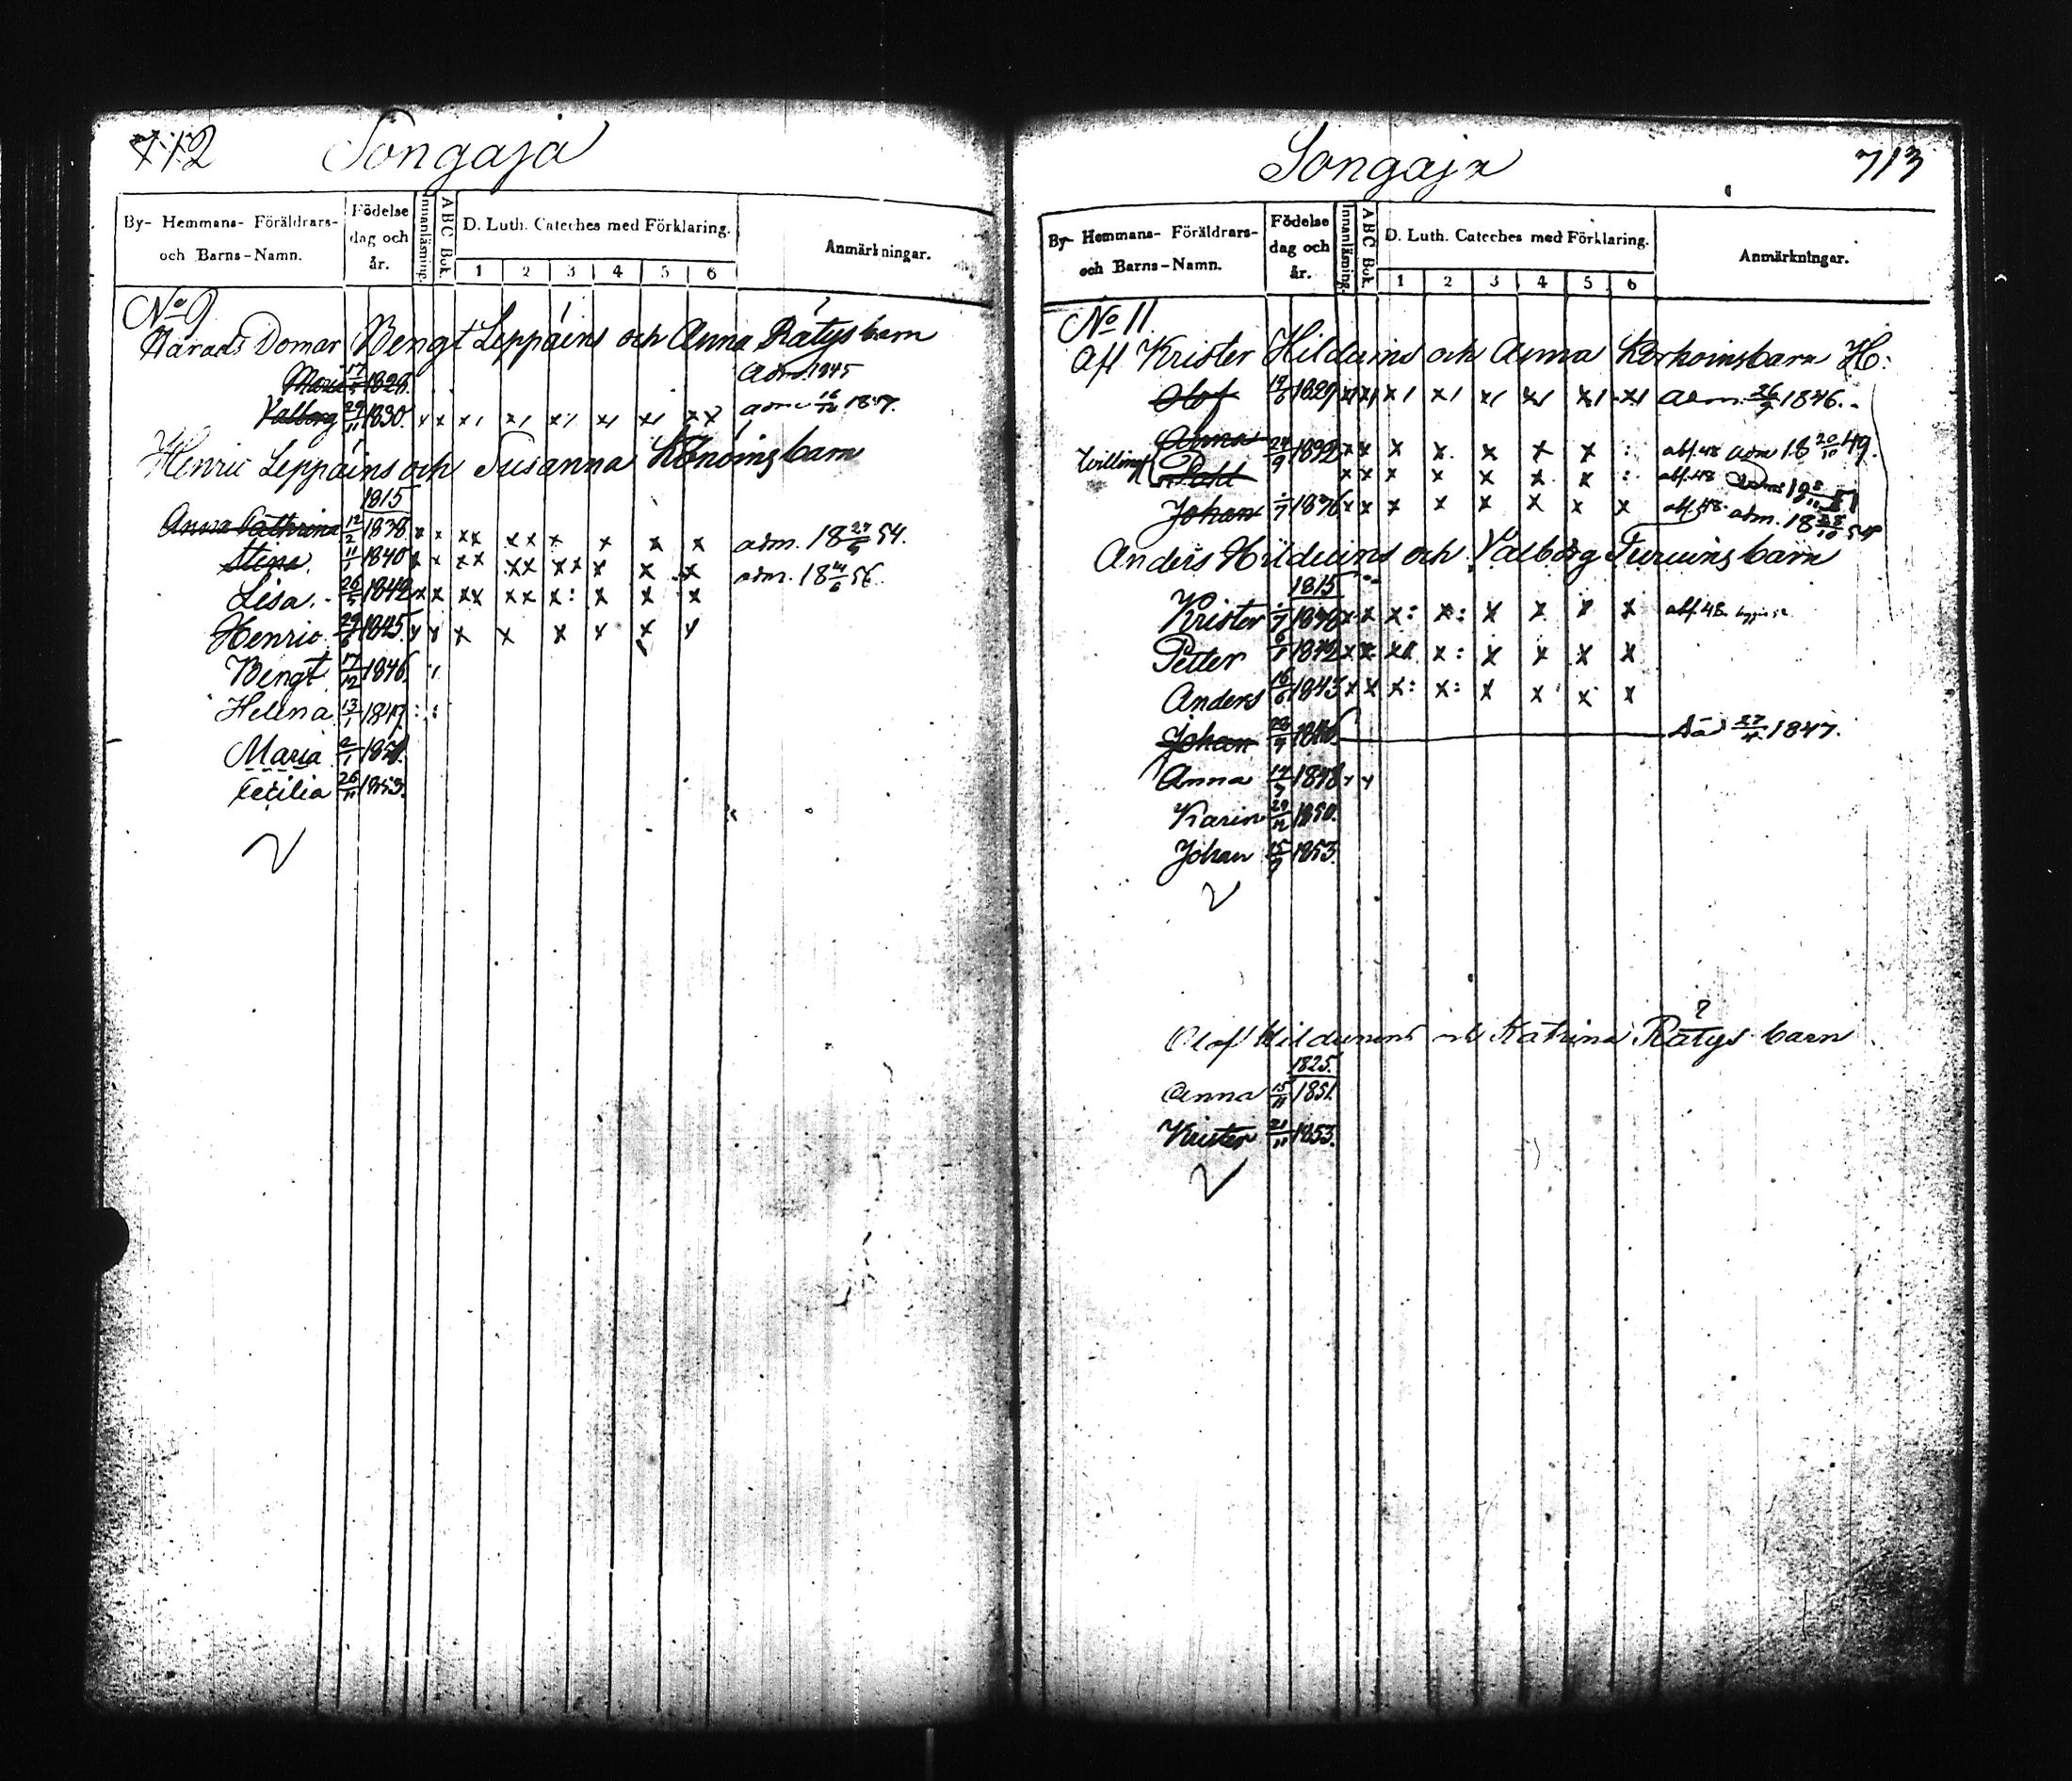 712 Songaja
By- Hemmans- Föräldrars- och Barns-Namn. Födelse dag och år. Innanläsning. A B C Bok. D. Luth. Cateches med Förklaring. 1 2 3 4 5 6 Anmärkningar.
No 9
Härads Domar Bengt Leppäins och Anna Rätys barn
Maria 17 1828. Adm. 1845
Valborg 29/11 1830. x x x/ x/ x/ x/ x/ adm 1847.
Henric Leppäins och Susanna Könöins barn
1815
Anna Cathrina 12/2 1838 x x xx xx x x x x adm. 18 24/6 54.
Stina 11/1 1840 x x xx xx xx x x x adm. 18 56.
Lisa. 26/5 1842 x x xx xx x: x x x
Henric 29/6 1845. x x x x x x x x
Bengt 17/12 1846.
Helena 13/1 1849 : :
Maria 2/1 1851.
Cecilia 26/11 1853.
2
Songaja 713
By- Hemmans- Föräldrars- och Barns-Namn. Födelse dag och år. Innanläsning. A B C Bok. D. Luth. Cateches med Förklaring. 1 2 3 4 5 6 Anmärkningar.
No 11
Afl Krister Hilduins och Anna Korhoins barn H:
Olof 1829 x/ x/ x/ x/ x/ x/ x/ x/ adm. 1846.
Anna 24/9 1832 x x x x x x x : abs. 48 adm 18 20/10 49.
Tvilling Pohl x x x x x x x : abs. 48
Johan 1836 x x x x x x x x abs. 48. adm. 18 54
Anders Hilduins och Valborg Turuins barn
1815
Krister 1840 x x x: x: x x x x abs. 48
Petter 6/1 1842 x x x x: x x x x
Anders 16/6 1843 x x x: x: x x x x
Johan 28 1846. Död 27/4 1847.
Anna 14/7 1848 x x
Karin 29/12 1850.
Johan 15/9 1853.
2
?
Olof Hilduinens och Katrina Rätys barn
1825.
Anna 15/11 1851.
Krister 21/11 1853.
2